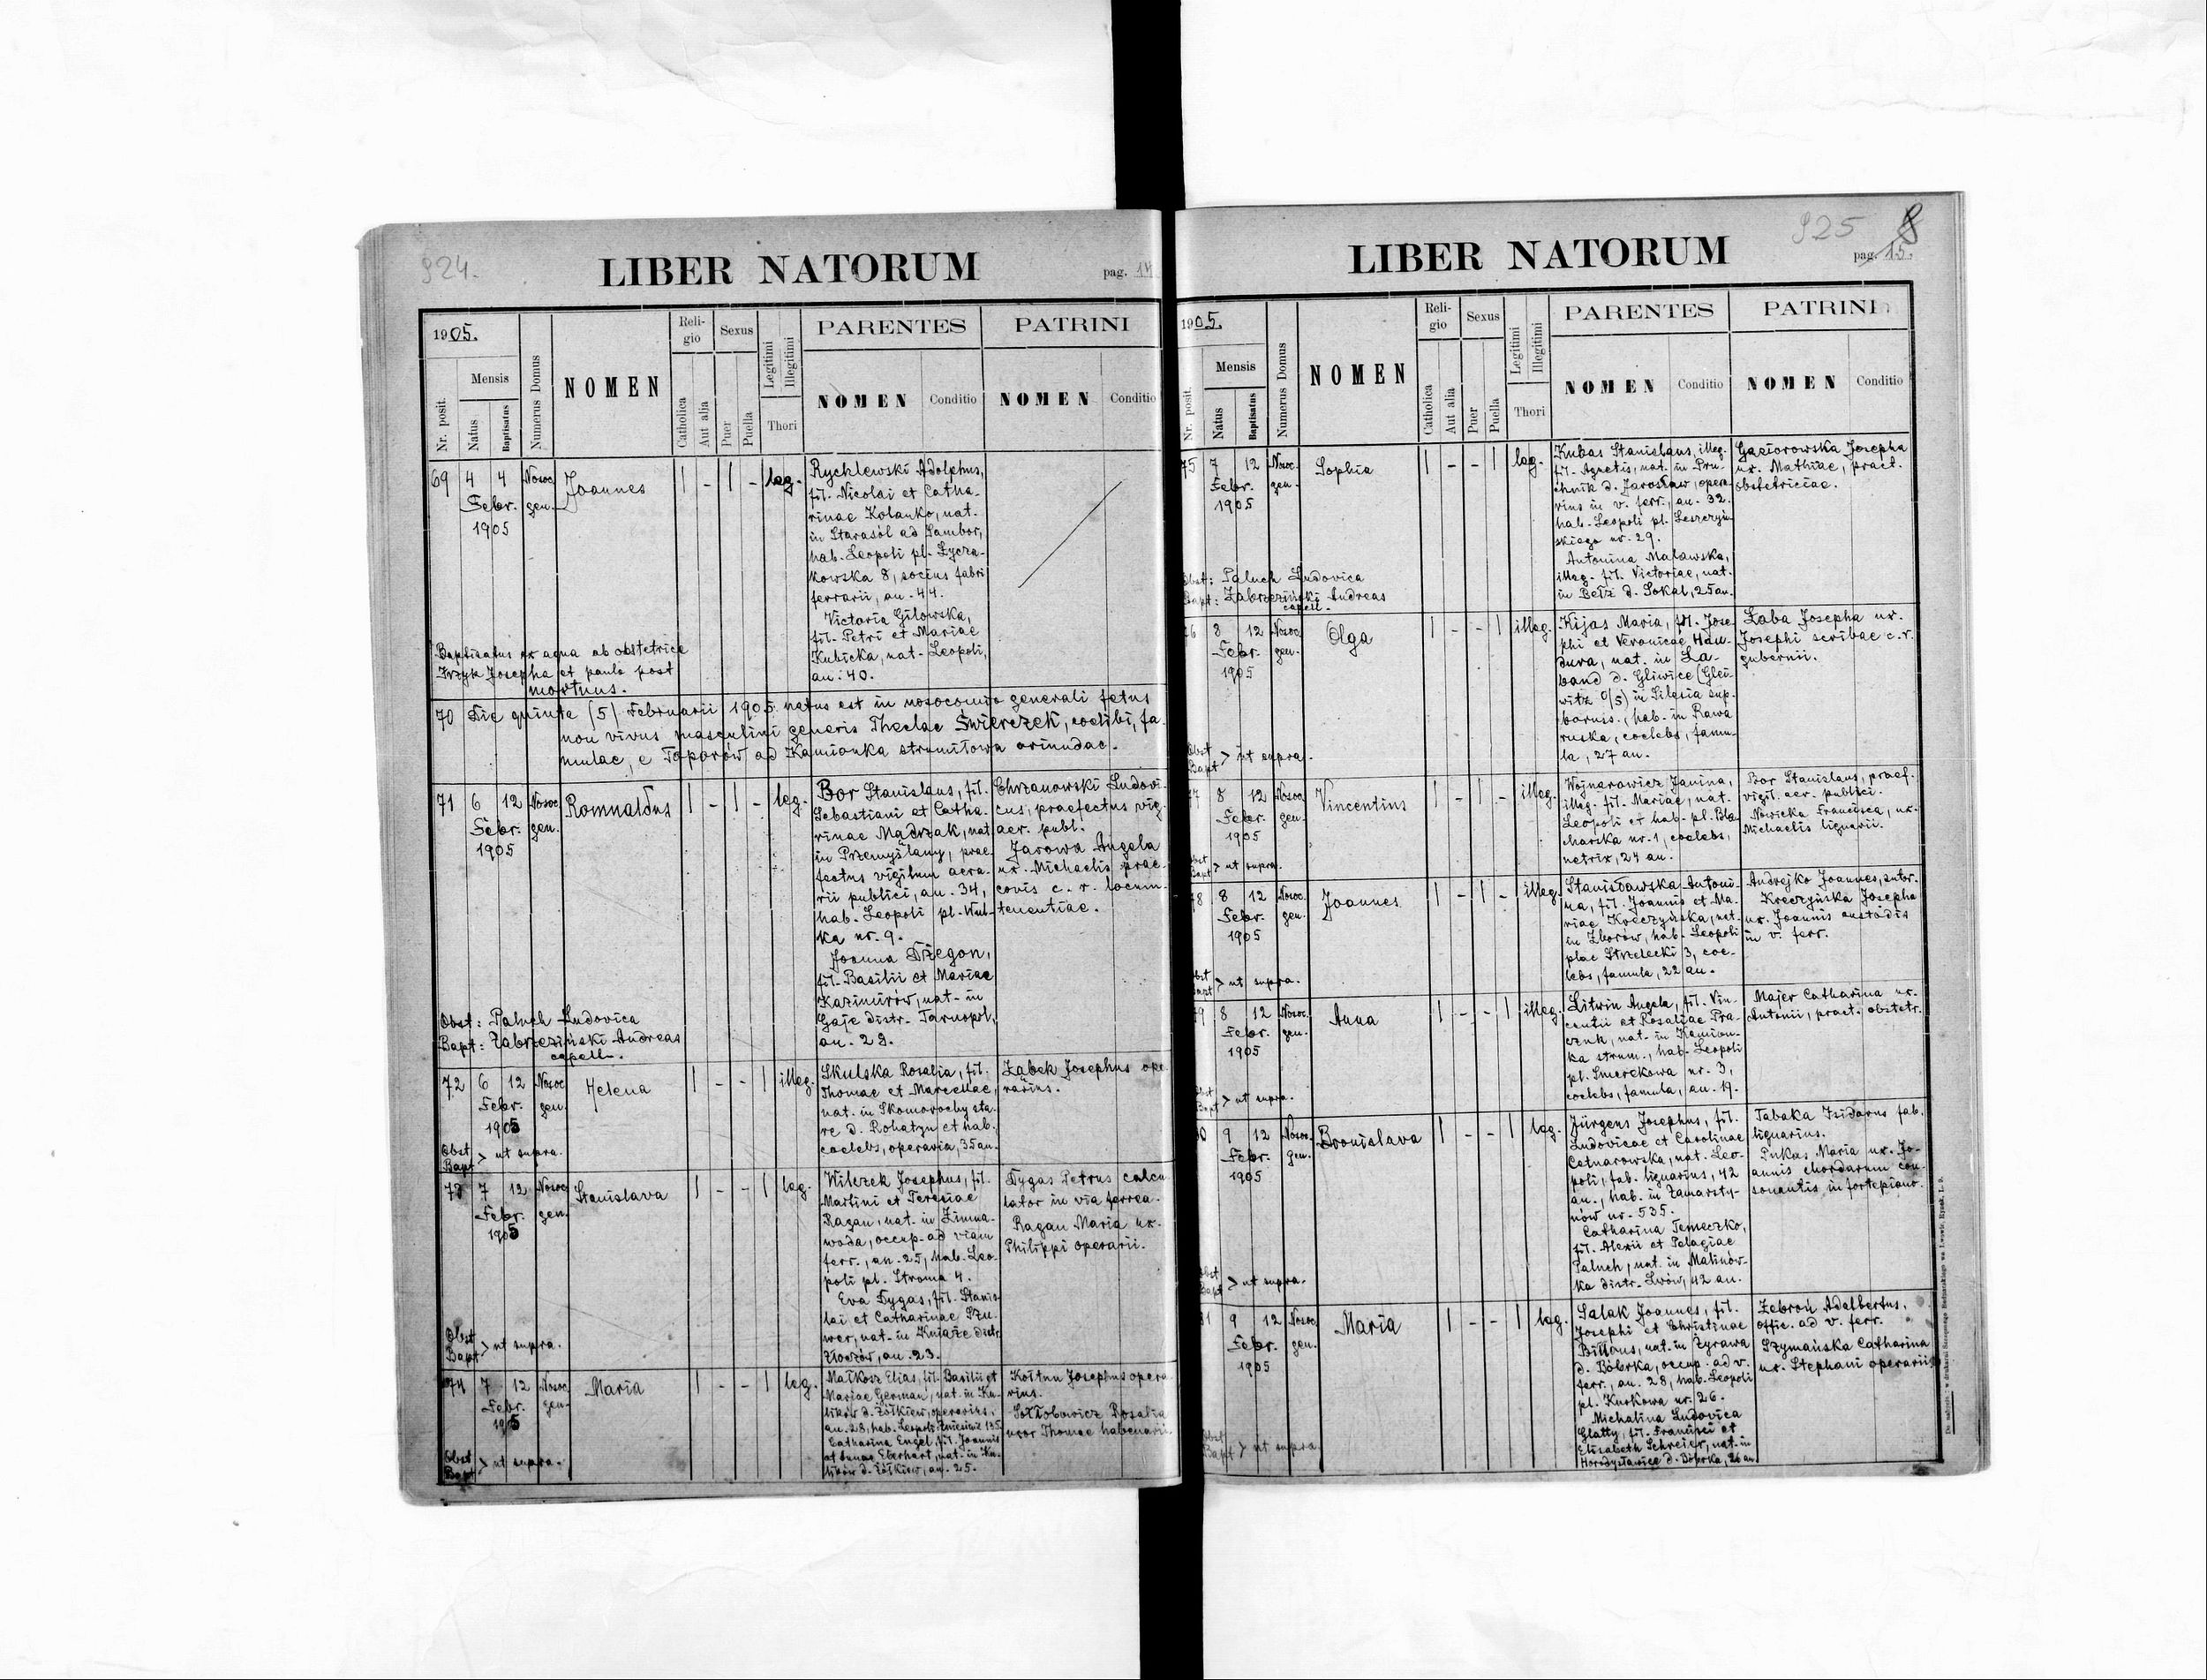 924.
LIBER NATORUM
pag. 14
1905.
Nr. posit.
Mensis
Natus
Baptisatus
Numerus Domus
NOMEN
Reli-
gio
Catholica
Aut alia
Sexus
Puer
Puella
Legitimi
Illegitimi
Thori
PARENTES
NOMEN
Conditio
PATRINI
NOMEN
Conditio
69 4 4 Nosoc. gen. Joannes | - | - leg.
Febr.
1905
Rychlewski Adolphus,
fil. Nicolai et Catha-
rinae Kolanko, nat.
in Starasól ad Sambor,
hab. Leopoli pl. Łycza-
kowska 8, socius fabri
ferrarii, an. 44.
Victoria Gilowska,
fil. Petri et Mariae
Kubicka, nat. Leopoli,
an: 40.
Baptisatus ex aqua ab obstetrice
Irzyk Josepha et paulo post
mortuus.
70 Die quinta (5) Februarii 1905 natus est in nosocomio generali fetus
non vivus masculini generis Theclae Świerczek, coelibi, fa-
mulae, e Toporów ad Kamionka strumiłowa oriundae.
71 6 12 Nosoc. gen. Romualdus | - | - leg.
Febr.
1905
Bor Stanislaus, fil.
Sebastiani et Catha-
rinae Mądrzak, nat.
in Przemyślany, prae-
fectus vigilum aera-
rii publici, an. 34,
hab. Leopoli pl. Wul-
ka nr. 9.
Joanna Dżegon,
fil. Basilii et Mariae
Kazimirów, nat. in
Gaje distr. Tarnopol,
an. 29.
Chrzanowski Ludovi-
cus, praefectus vig.
aer. publ.
Jarowa Angela
ux. Michaelis prae-
conis c. r. locum-
tenentiae.
Obst: Paluch Ludovica
Bapt: Zabrzeziński Andreas
capell.
72 6 12 Nosoc. gen. Helena | - - | illeg.
Febr.
1905
Skulska Rosalia, fil.
Thomae et Marcellae,
nat. in Skomorochy sta-
re d. Rohatyn et hab.
coelebs, operaria, 35 an.
Ząbek Josephus ope-
rarius.
Obst
Bapt > ut supra.
73 7 12 Nosoc. gen. Stanislava | - - | leg.
Febr.
1905
Wilczek Josephus, fil.
Martini et Teresiae
Ragan, nat. in Zimna-
woda, occup. ad viam
ferr., an. 25, hab. Leo-
poli pl. Stroma 4.
Eva Dygas, fil. Stanis-
lai et Catharinae Szu-
wer, nat. in Kniaże distr.
Złoczów, an. 23.
Dygas Petrus calcu-
lator in via ferrea.
Ragan Maria ux.
Philippi operarii.
Obst
Bapt > ut supra.
74 7 12 Nosoc. gen. Maria | - - | leg.
Febr.
1905
Małkosz Elias, fil. Basilii et
Mariae German, nat. in Ku-
lików d. Żółkiew, operarius,
an. 28, hab. Leopoli Zniesienie 135.
Catharina Engel, fil. Joannis
et Annae Eberhart, nat. in Ku-
lików d. Żółkiew, an. 25.
Kołtun Josephus opera-
rius.
Rosalia
uxor Thomae habenarii.
Obst
Bapt > ut supra.
925 8
LIBER NATORUM
pag. 15.
1905.
Nr. posit.
Mensis
Natus
Baptisatus
Numerus Domus
NOMEN
Reli-
gio
Catholica
Aut alja
Sexus
Puer
Puella
Legitimi
Illegitimi
Thori
PARENTES
NOMEN
Conditio
PATRINI
NOMEN
Conditio
75 7 12 Nosoc. gen. Sophia | - - | leg.
Febr.
1905
Kubas Stanislaus, illeg.
fil. Agnetis, nat. in Pru-
chnik d. Jarosław, opera-
rius in v. ferr., an. 32.
hab. Leopoli pl. Leszczyń-
skiego nr. 29.
Antonina Malawska,
illeg. fil. Victoriae, nat.
in Bełz d. Sokal, 25 an.
Gąsiorowska Josepha
ux. Mathiae, pract.
obstetriciae.
Obst: Paluch Ludovica
Bapt: Zabrzeziński Andreas
capell.
76 8 12 Nosoc. gen. Olga | - - | illeg.
Febr.
1905
Kijas Maria, fil. Jose-
phi et Veronicae Han-
dura, nat. in La-
band d. Gliwice (Glei-
witz O/S) in Silesia sup.
boruss., hab. in Rawa
ruska, coelebs, famu-
la, 27 an.
Laba Josepha ux.
Josephi scribae c. r.
gubernii.
Obst
Bapt > ut supra.
77 8 12 Nosoc. gen. Vincentius | - | - illeg.
Febr.
1905
Wojnarowicz Janina,
illeg. fil. Mariae, nat.
Leopoli et hab. pl. Bla-
charska nr. 1, coelebs,
netrix, 24 an.
Bor Stanislaus, praef.
vigil. aer. publici.
Nowicka Francisca, ux.
Michaelis lignarii.
Obst
Bapt > ut supra.
78 8 12 Nosoc. gen. Joannes | - | - illeg.
Febr.
1905
Stanisławska Antoni-
na, fil. Joannis et Ma-
riae Kreczyńska, nat.
in Zborów, hab. Leopoli
plac Strzelecki 3, coe-
lebs, famula, 22 an.
Andrejko Joannes, sutor.
Kreczyńska Josepha
ux. Joannis custodis
in v. ferr.
Obst
Bapt > ut supra.
79 8 12 Nosoc. gen. Anna | - - | illeg.
Febr.
1905
Litwin Angela, fil. Vin-
centii et Rosaliae Pra-
czuk, nat. in Kamion-
ka strum., hab. Leopoli
pl. Smerekowa nr. 3,
coelebs, famula, an. 19.
Majer Catharina ux.
Antonii, pract. obstetr.
Obst
Bapt > ut supra.
80 9 12 Nosoc. gen. Bronislava | - - | leg.
Febr.
1905
Jürgens Josephus, fil.
Ludovicae et Carolinae
Cetnarowska, nat. Leo-
poli, fab. lignarius, 42
an., hab. in Zamarsty-
nów nr. 535.
Catharina Temeczko,
fil. Alexii et Pelagiae
Paluch, nat. in Malinów-
ka distr. Lwów, 42 an.
Tabaka Isidorus fab.
lignarius.
Pukas Maria ux. Jo-
annis chordarum con-
sonantis in fortepiano.
Obst
Bapt > ut supra.
81 9 12 Nosoc. gen. Maria | - - | leg.
Febr.
1905
Salak Joannes, fil.
Josephi et Christinae
nat. in Żyrawa
d. Bóbrka, occup. ad v.
ferr., an. 28, hab. Leopoli
pl. Kurkowa nr. 26.
Michalina Ludovica
Glatty, fil. Francisci et
Elisabeth Schreier, nat. in
Horodysławice d. Bóbrka, 26 an.
Żebroń Adalbertus,
offic. ad v. ferr.
Szymańska Catharina
ux. Stephani operarii.
Obst
Bapt > ut supra.